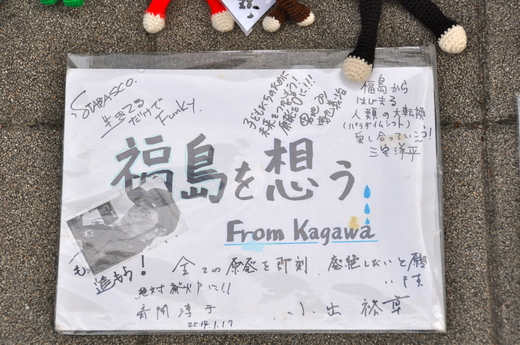 STABASCO.
生きてる
だけで
Funky.
子どもたちのために
未来をつなごう!
原発を
福島から
はじまる
人類の大転換
(パラダイムシフト)
愛し合っていこう!
三宅洋平
福島を想う
From Kagawa
も
追もう!
全ての原発を即刻、廃絶したいと願
います。
絶対
斉間淳子
2014.1.17
小出裕章